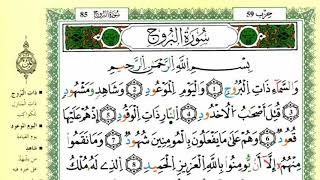 سورة البروج 85
جزء عم 59
سُورَةُ البُرُوجِ
بِسْمِ اللَّهِ الرَّحْمَنِ الرَّحِيمِ
وَالسَّمَاءِ ذَاتِ الْبُرُوجِ ١ وَالْيَوْمِ الْمَوْعُودِ ٢ وَشَاهِدٍ وَمَشْهُودٍ
٣ قُتِلَ أَصْحَابُ الْأُخْدُودِ ٤ النَّارِ ذَاتِ الْوَقُودِ ٥ إِذْ هُمْ عَلَيْهَا
قُعُودٌ ٦ وَهُمْ عَلَى مَا يَفْعَلُونَ بِالْمُؤْمِنِينَ شُهُودٌ ٧ وَمَا نَقَمُوا
مِنْهُمْ إِلَّا أَنْ يُؤْمِنُوا بِاللَّهِ الْعَزِيزِ الْحَمِيدِ ٨ الَّذِي لَهُ مُلْكُ
ذات البروج
ذات المنازل
اليوم الموعود
شاهد